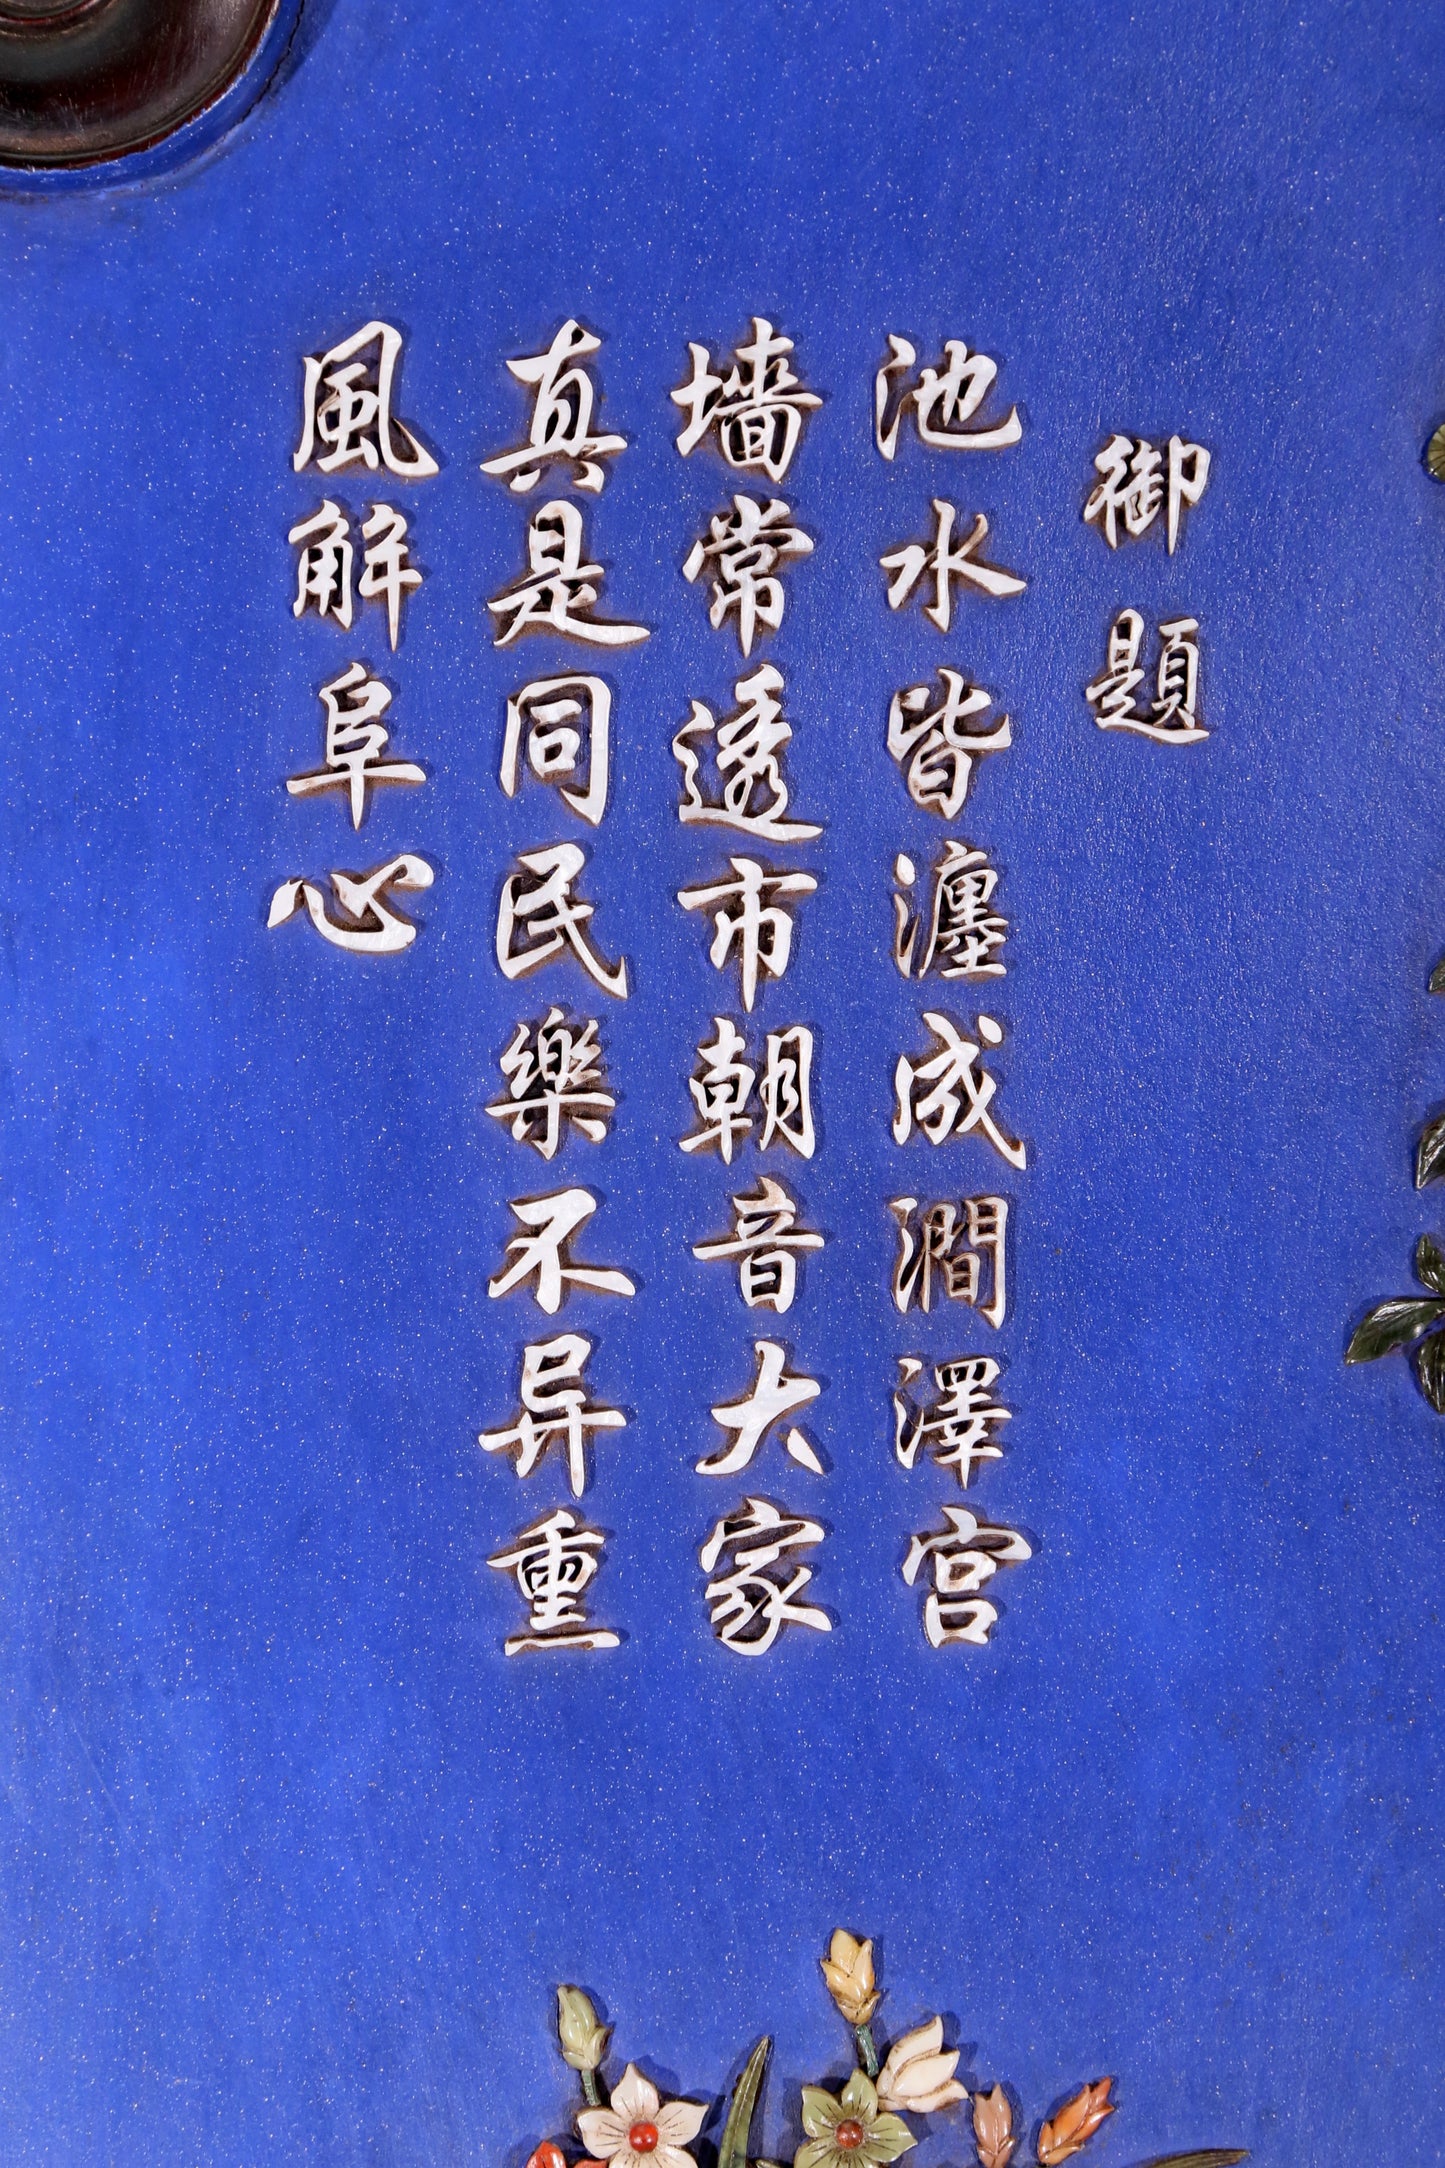 御題
池水皆瀍成澗澤宮
墻常透市朝音大家
真是同民樂不异重
風解阜心